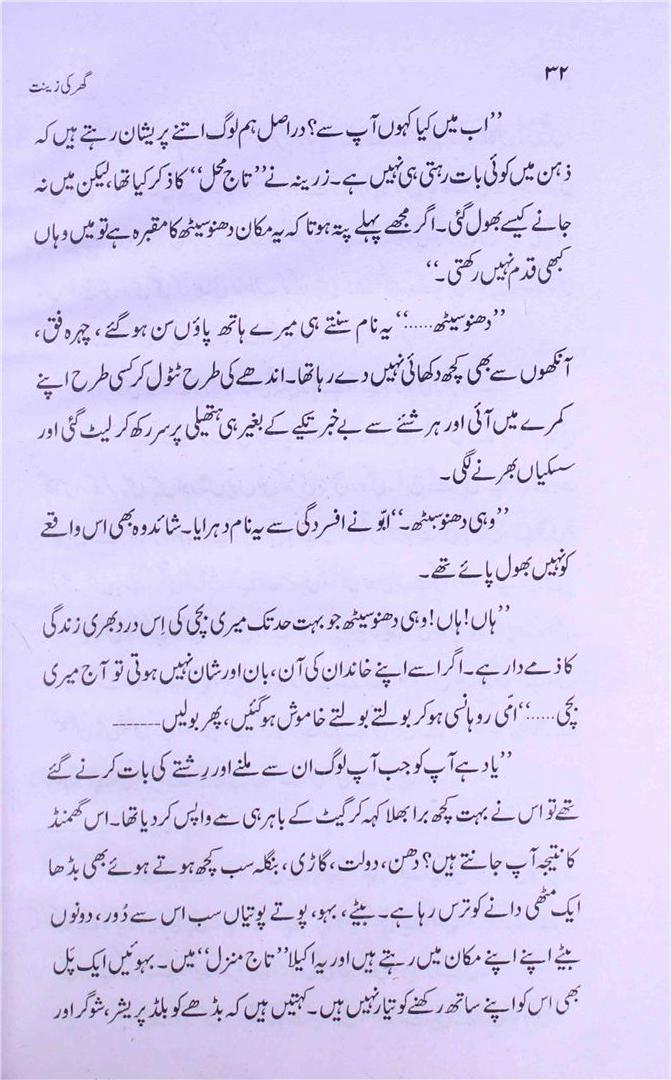 ۳۲
گھر کی زینت
”اب میں کیا کہوں آپ سے؟ دراصل ہم لوگ اتنے پریشان رہتے ہیں کہ
ذہن میں کوئی بات رہتی ہی نہیں ہے۔ زرینہ نے ”تاج محل“ کا ذکر کیا تھا، لیکن میں نہ
جانے کیسے بھول گئی۔ اگر مجھے پہلے پتہ ہوتا کہ یہ مکان دھنو سیٹھ کا مقبرہ ہے تو میں وہاں
کبھی قدم نہیں رکھتی۔“
”دھنو سیٹھ.....“ یہ نام سنتے ہی میرے ہاتھ پاؤں سن ہو گئے، چہرہ فق،
آنکھوں سے بھی کچھ دکھائی نہیں دے رہا تھا۔ اندھے کی طرح ٹٹول کر کسی طرح اپنے
کمرے میں آئی اور ہر شئے سے بے خبر تکیے کے بغیر ہی ہتھیلی پر سر رکھ کر لیٹ گئی اور
سسکیاں بھرنے لگی۔
”وہی دھنو سیٹھ۔“ ابّو نے افسردگی سے یہ نام دہرایا۔ شائد وہ بھی اس واقعے
کو نہیں بھول پائے تھے۔
”ہاں! ہاں! وہی دھنو سیٹھ جو بہت حد تک میری بچی کی اِس درد بھری زندگی
کا ذمے دار ہے۔ اگر اسے اپنے خاندان کی آن، بان اور شان نہیں ہوتی تو آج میری
بچی.....“ امّی روہانسی ہو کر بولتے بولتے خاموش ہو گئیں، پھر بولیں۔۔۔۔۔۔
”یاد ہے آپ کو جب آپ لوگ ان سے ملنے اور رِشتے کی بات کرنے گئے
تھے تو اس نے بہت کچھ برا بھلا کہہ کر گیٹ کے باہر ہی سے واپس کر دیا تھا۔ اس گھمنڈ
کا نتیجہ آپ جانتے ہیں؟ دھن، دولت، گاڑی، بنگلہ سب کچھ ہوتے ہوئے بھی بڈھا
ایک مٹھی دانے کو ترس رہا ہے۔ بیٹے، بہو، پوتے پوتیاں سب اس سے دُور، دونوں
بیٹے اپنے اپنے مکان میں رہتے ہیں اور یہ اکیلا ”تاج منزل“ میں۔ بہوئیں ایک پَل
بھی اس کو اپنے ساتھ رکھنے کو تیار نہیں ہیں۔ کہتیں ہیں کہ بڈھے کو بلڈ پریشر، شوگر اور